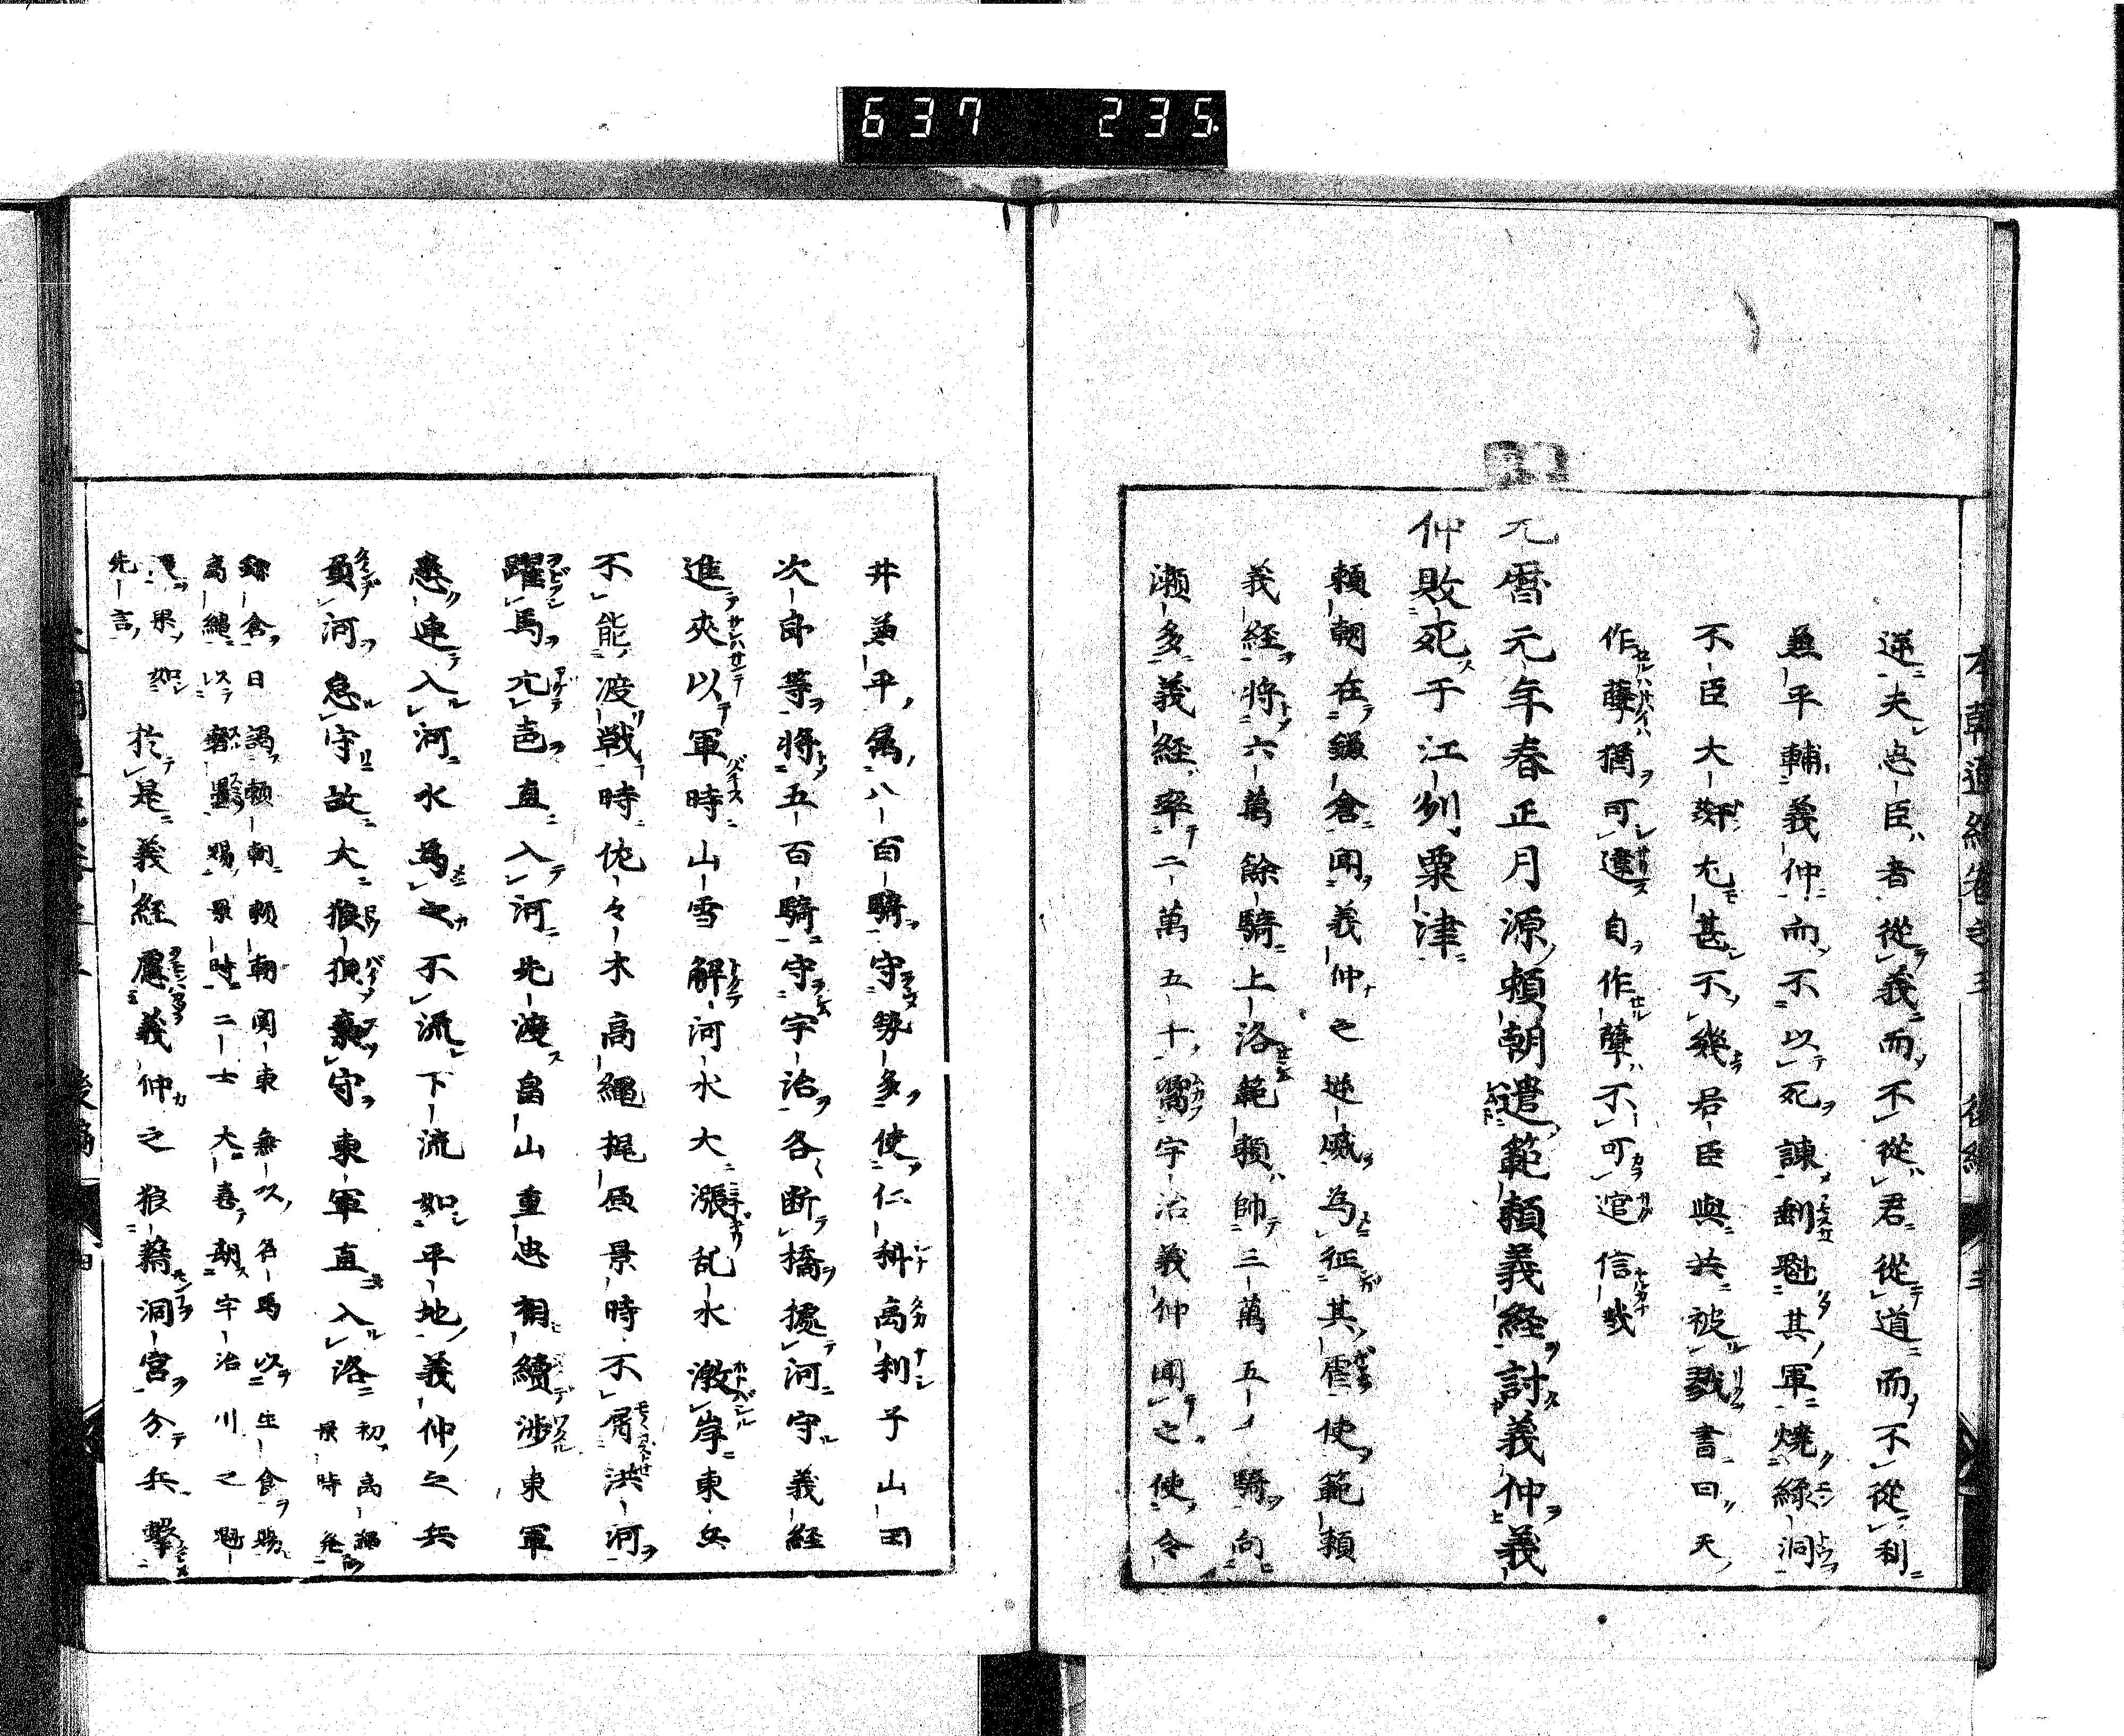 637 235
逆夫忠臣者從義而不從君從道而不從利
無平輔義仲而不以死諫剰魁其軍焼緑洞
不臣大姧尤甚不幾君臣與共被戮書曰天
作孽猶可違自作孽不可逭信哉
元暦元年春正月源頼朝遣範頼義経討義仲義
仲敗死于江州粟津
頼朝在鎌倉聞義仲之逆威為征其虐使範頼
義経将六萬餘騎上洛範頼帥三萬五千騎向
瀬多義経率二萬五十嚮宇治義仲聞之使令
井兼平属八百騎守勢多使仁科高利予山田
次郎等将五百騎守宇治各断橋據河守義経
進夾以軍時山雪解河水大漲乱水激岸東兵
不能渡戦時佐々木高縄梶原景時不屑洪河
躍馬亢邑直入河先渡畠山重忠相續渉東軍
悉連入河水為之不流下流如平地義仲之兵
負河急守故大狼狽棄守東軍直入洛 初高縄景時発
鎌倉日謁頼朝頼朝関東無以名馬以生食賜
高縄以磨墨賜景時二士大喜期宇治川之魁
果如
先言 於是義経慮義仲之狼藉洞宮分兵撃